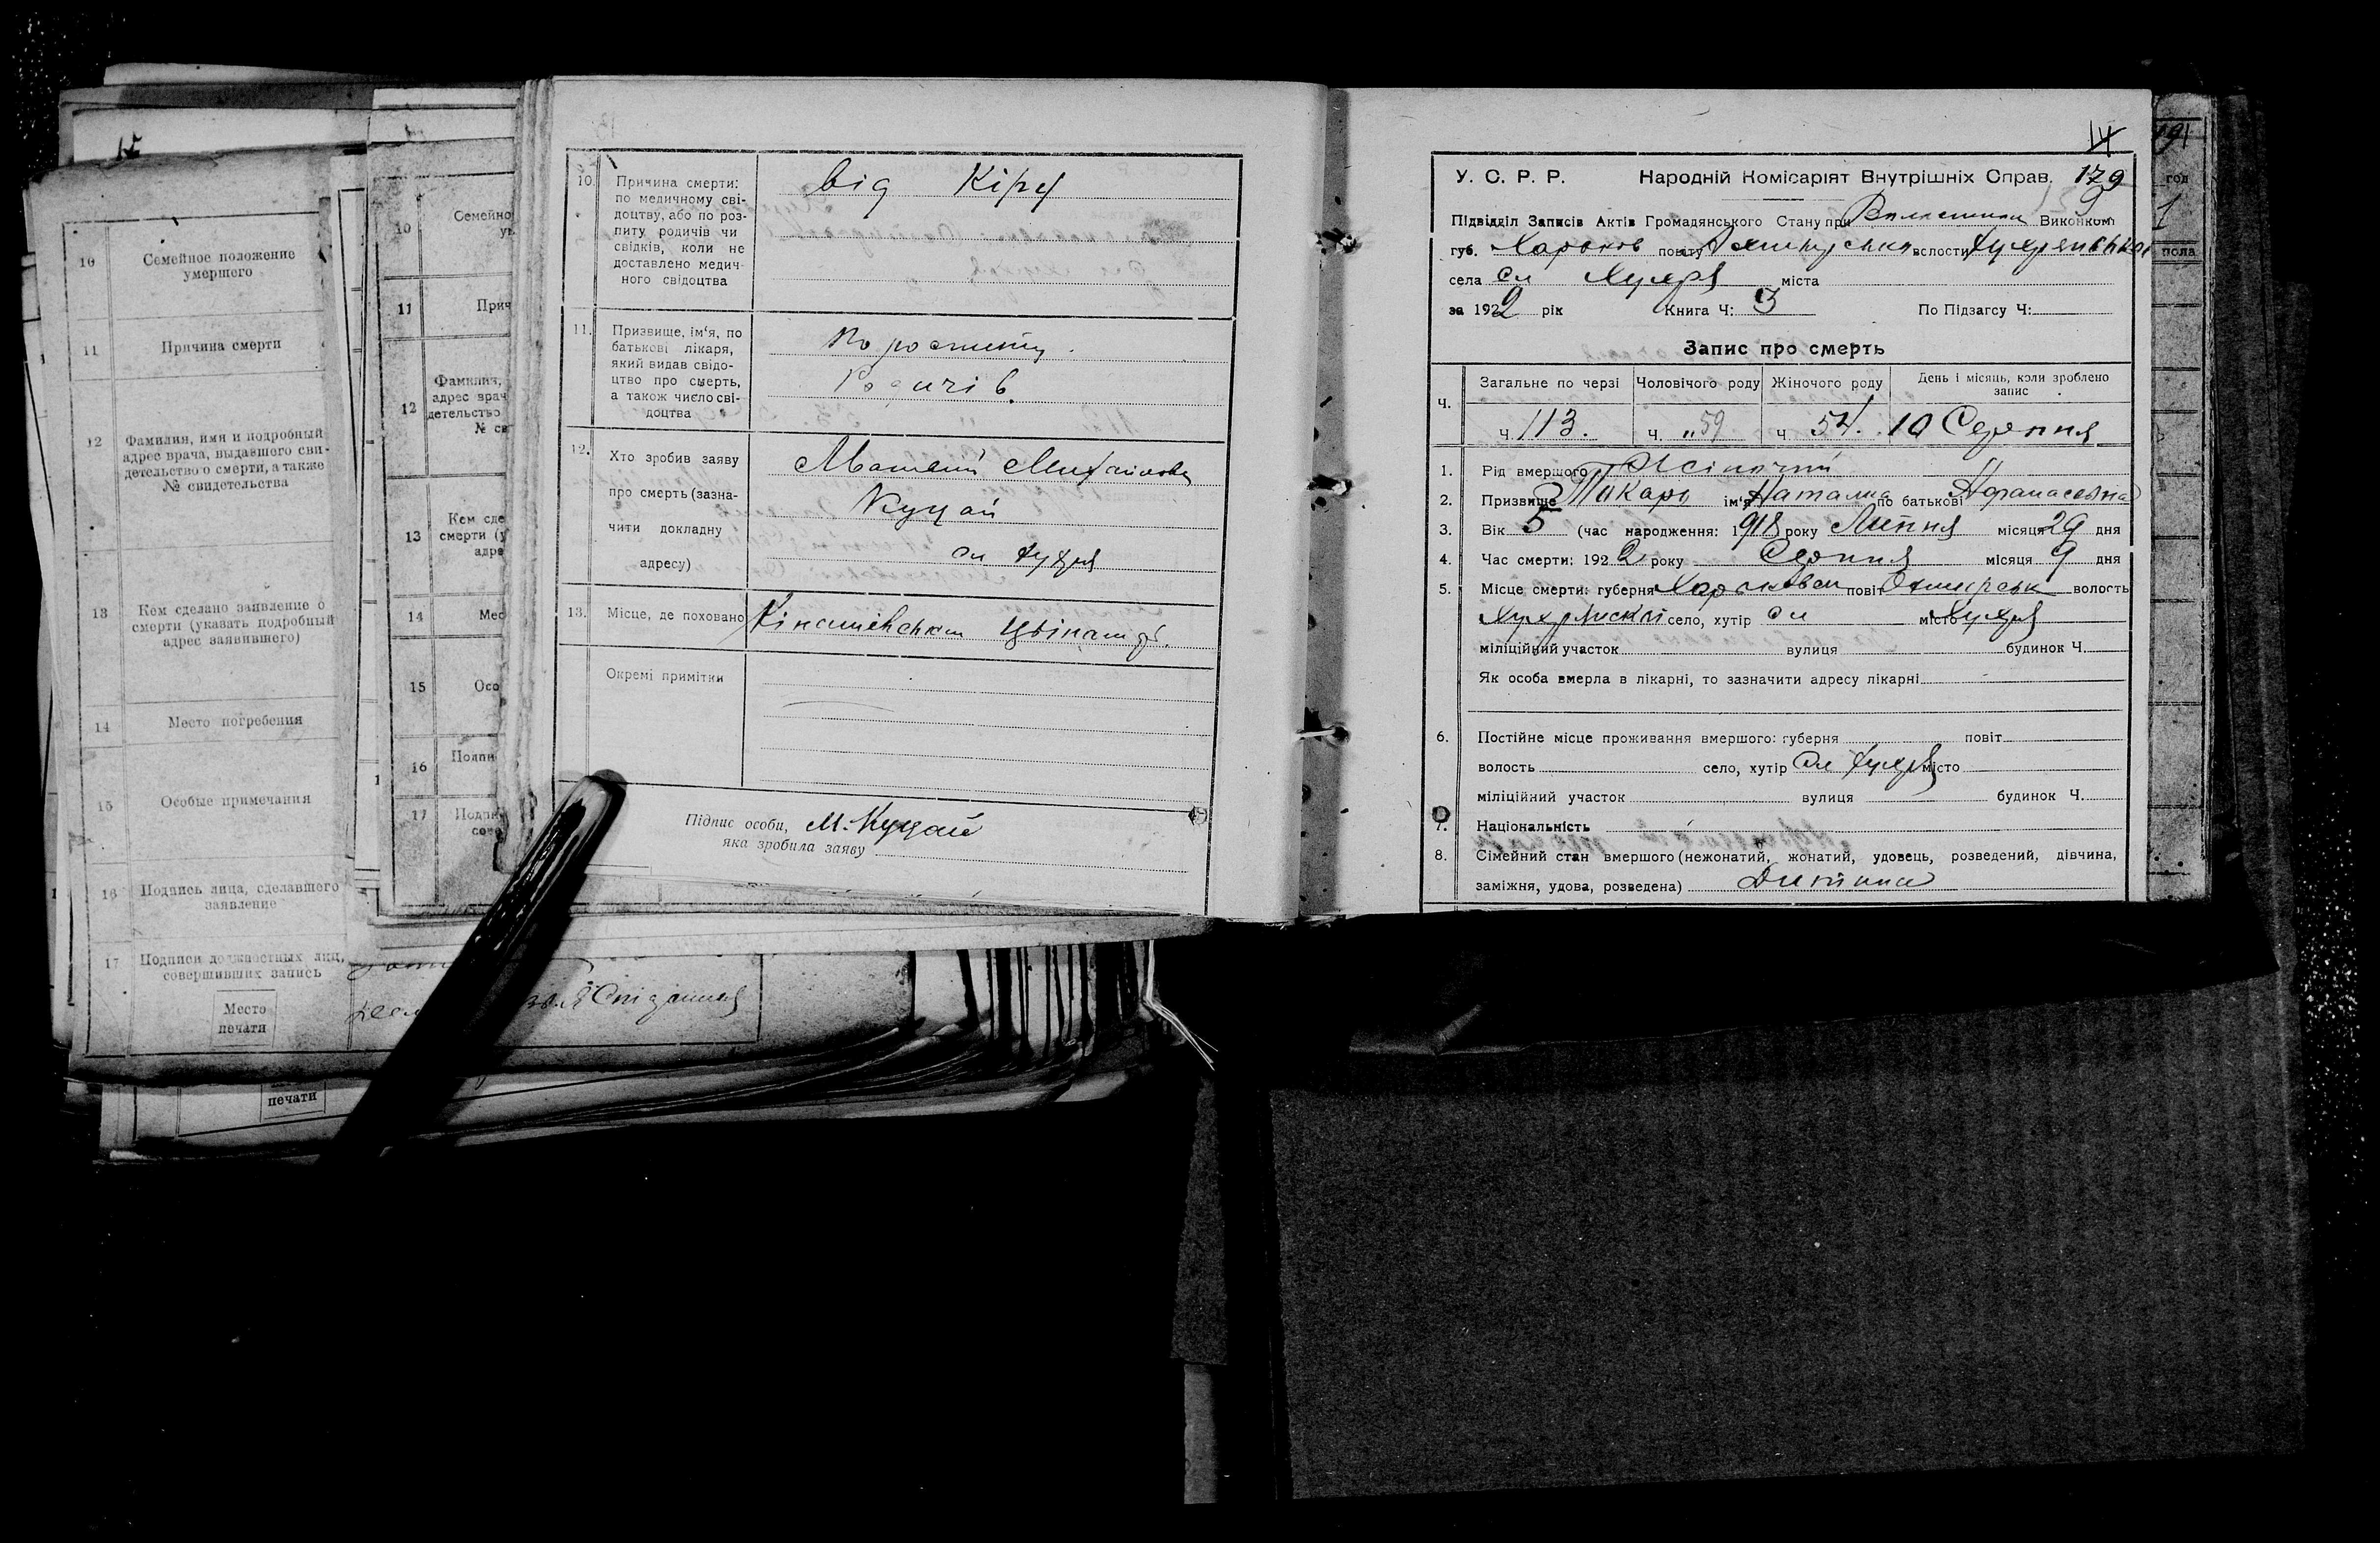 10 Семейное положение
умершего
11 Причина смерти
12 Фамилия, имя и подробный
адрес врача, выдавшего сви-
детельство о смерти, а также
№ свидетельства
13 Кем сделано заявление о
смерти (указать подробный
адрес заявившего)
14 Место погребения
15 Особые примечания
16 Подпись лица, сделавшего
заявление
17 Подписи должностных лиц,
совершивших запись
Место
печати
печати
10 Семейно
11 Прич
12 Фамилия,
адрес врач
детельство
№ св
13 Кем сде
смерти (у
адре
14 Мес
15 Осо
16 Подпи
17 Подпи
10. Причина смерти:
по медичному сві-
доцтву, або по роз-
питу родичів чи
свідків, коли не
доставлено медич-
ного свідоцтва
від Кіру
11. Призвище, ім'я, по
батькові лікаря,
який видав свідо-
цтво про смерть,
а також число сві-
доцтва
Родичів.
12. Хто зробив заяву
про смерть (зазна-
чити докладну
адресу)
Куцай
сл Хухря
13. Місце, де поховано
Окремі примітки
Підпис особи, М. Куцай
яка зробила заяву
179
У. С. Р. Р. Народній Комісаріят Внутрішніх Справ.
Підвідділ Записів Актів Громадянського Стану при Виконком
губ. Харьков повіту волости
села сл Хухря міста
за 1922 рік Книга Ч: 3 По Підзагсу Ч:
Запис про смерть
ч. Загальне по черзі Чоловічого роду Жіночого роду День і місяць, коли зроблено
запис
Ч. 113. Ч. " 59 Ч. 54. 10 Серпня
1. Рід вмершого Жіночий
2. Призвище Токарь ім'я Наталия по батькові Афанасовна
3. Вік 5 (час народження: 1918 року Липня місяця 29 дня
4. Час смерти: 1922 року Серпня місяця 9 дня
5. Місце смерти: губерня повіт Охтирськ волость
село, хутір сл місто Хухря
міліційний участок вулиця будинок Ч.
Як особа вмерла в лікарні, то зазначити адресу лікарні
6. Постійне місце проживання вмершого: губерня повіт
волость село, хутір Сл Хухря місто
міліційний участок вулиця будинок Ч.
7. Національність
8. Сімейний стан вмершого (нежонатий, жонатий, удовець, розведений, дівчина,
заміжня, удова, розведена) Дитина
год
пола